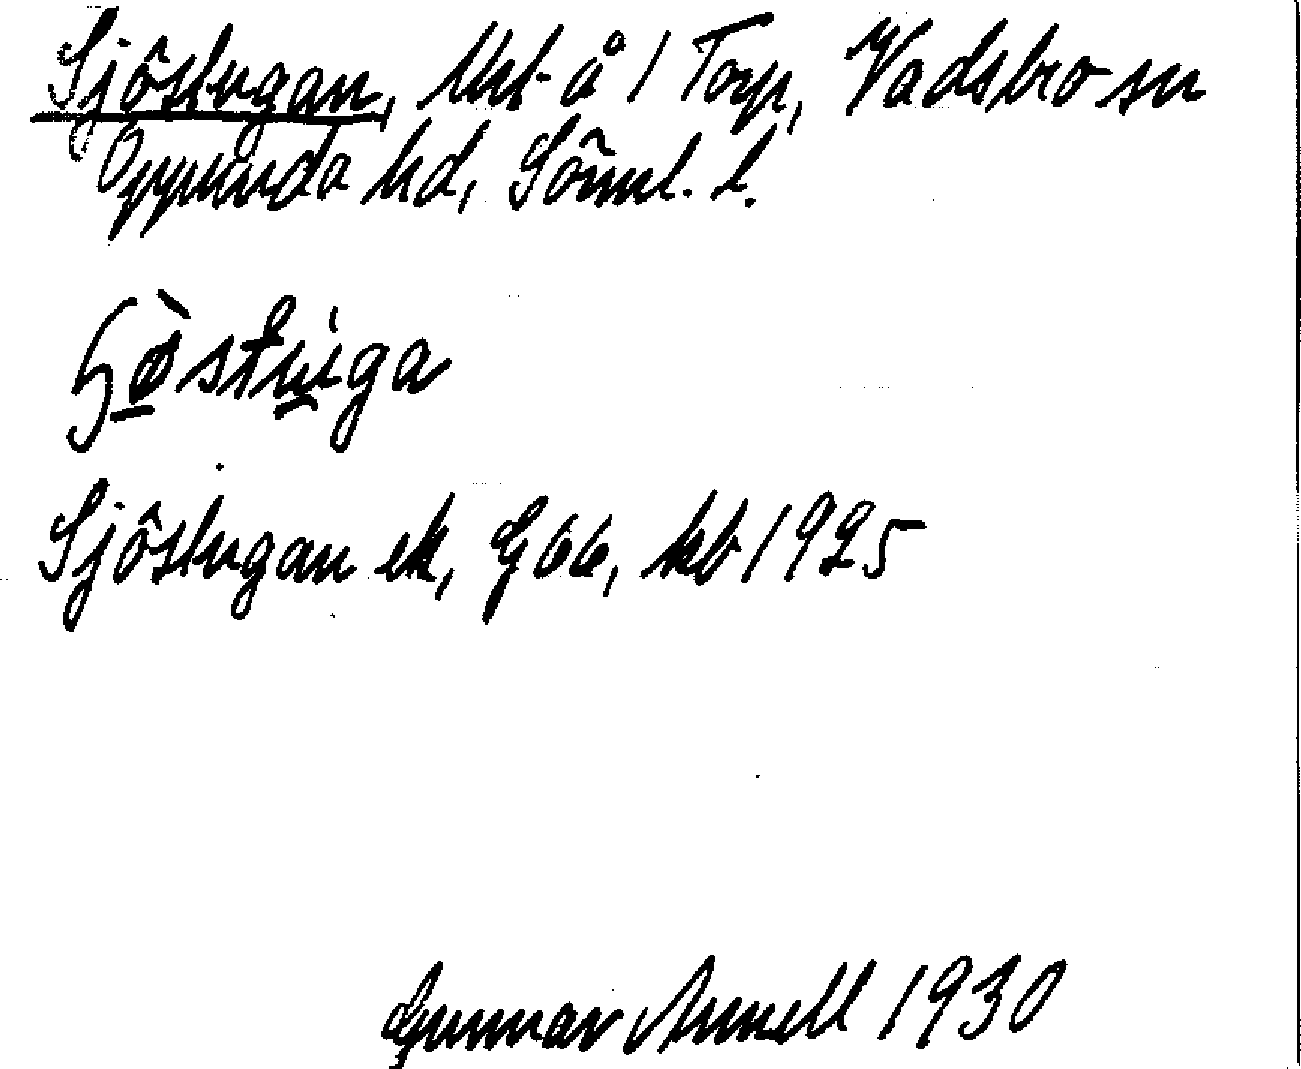 Sjöstugan, lht å 1 Torp, Vadsbro sn
Oppunda hd, Sörml. l.
ʃö̀stúga
Sjöstugan ek, G 66, kb 1925
Gunnar Arnell 1930